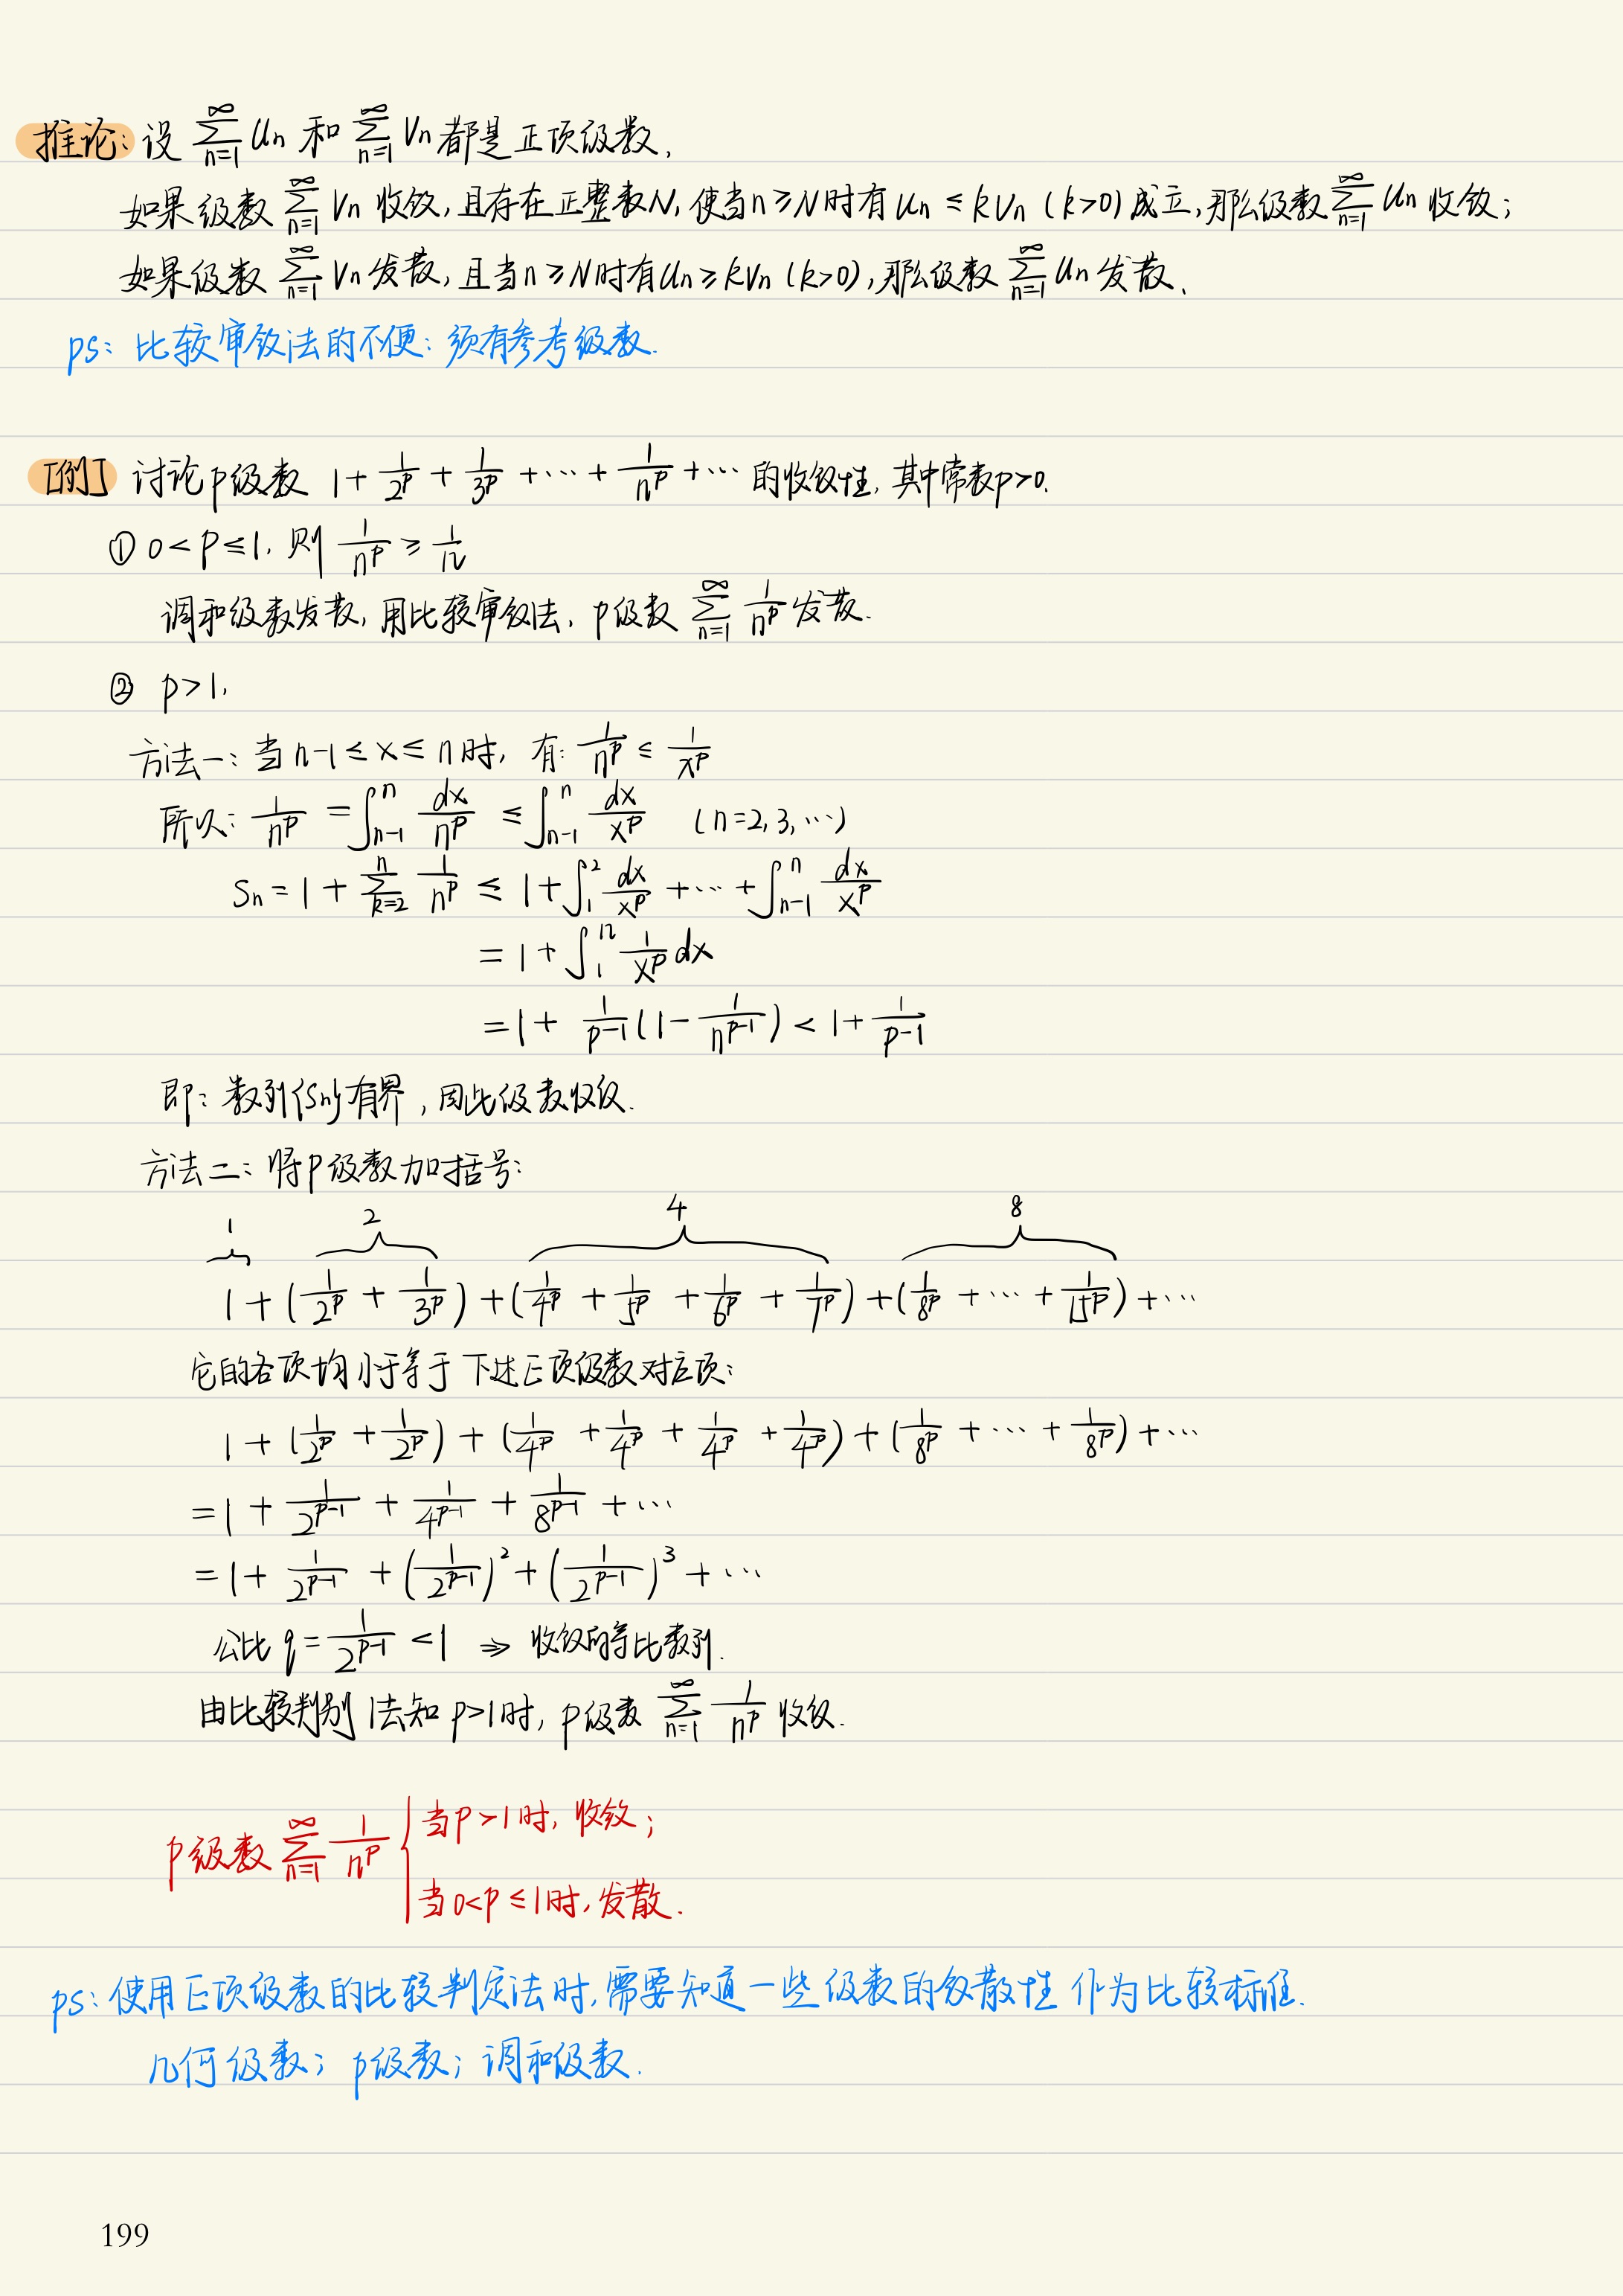 推论: 设 $\sum_{n=1}^{\infty} u_n$ 和 $\sum_{n=1}^{\infty} v_n$ 都是正项级数,
如果级数 $\sum_{n=1}^{\infty} v_n$ 收敛, 且存在正整数N, 使当 $n \geq N$ 时有 $u_n \leq k v_n$ ($k>0$) 成立, 那么级数 $\sum_{n=1}^{\infty} u_n$ 收敛;
如果级数 $\sum_{n=1}^{\infty} v_n$ 发散, 且当 $n \geq N$ 时有 $u_n \geq k v_n$ ($k>0$), 那么级数 $\sum_{n=1}^{\infty} u_n$ 发散.
ps: 比较审敛法的不便: 须有参考级数.
[例] 讨论p级数 $1+\frac{1}{2^p}+\frac{1}{3^p}+\cdots+\frac{1}{n^p}+\cdots$ 的收敛性, 其中常数p>0.
① $0<p\leq1$, 则 $\frac{1}{n^p} \geq \frac{1}{n}$
调和级数发散, 用比较审敛法, p级数 $\sum_{n=1}^{\infty} \frac{1}{n^p}$ 发散.
② p>1,
方法一: 当 $n-1 \leq x \leq n$ 时, 有: $\frac{1}{n^p} \leq \frac{1}{x^p}$
所以: $\frac{1}{n^p} = \int_{n-1}^{n} \frac{dx}{n^p} \leq \int_{n-1}^{n} \frac{dx}{x^p}$ (n=2,3,⋯)
$S_n = 1+\sum_{k=2}^{n} \frac{1}{n^p} \leq 1+\int_{1}^{2} \frac{dx}{x^p}+\cdots+\int_{n-1}^{n} \frac{dx}{x^p}$
$= 1+\int_{1}^{n} \frac{1}{x^p} dx$
$= 1+\frac{1}{p-1}(1-\frac{1}{n^{p-1}}) < 1+\frac{1}{p-1}$
即: 数列{Sn}有界, 因此级数收敛.
方法二: 将p级数加括号:
1 2 4 8
$1+(\frac{1}{2^p}+\frac{1}{3^p})+(\frac{1}{4^p}+\frac{1}{5^p}+\frac{1}{6^p}+\frac{1}{7^p})+(\frac{1}{8^p}+\cdots+\frac{1}{15^p})+\cdots$
它的各项均小于等于下述正项级数对应项:
$1+(\frac{1}{2^p}+\frac{1}{2^p})+(\frac{1}{4^p}+\frac{1}{4^p}+\frac{1}{4^p}+\frac{1}{4^p})+(\frac{1}{8^p}+\cdots+\frac{1}{8^p})+\cdots$
$=1+\frac{1}{2^{p-1}}+\frac{1}{4^{p-1}}+\frac{1}{8^{p-1}}+\cdots$
$=1+\frac{1}{2^{p-1}}+(\frac{1}{2^{p-1}})^2+(\frac{1}{2^{p-1}})^3+\cdots$
公比 $q=\frac{1}{2^{p-1}}<1$ ⇒ 收敛的等比数列.
由比较判别法知p>1时, p级数 $\sum_{n=1}^{\infty} \frac{1}{n^p}$ 收敛.
p级数 $\sum_{n=1}^{\infty} \frac{1}{n^p}$ { 当p>1时, 收敛;
当0<p≤1时, 发散.
ps: 使用正项级数的比较判定法时, 需要知道一些级数的敛散性作为比较标准.
几何级数; p级数; 调和级数.
199